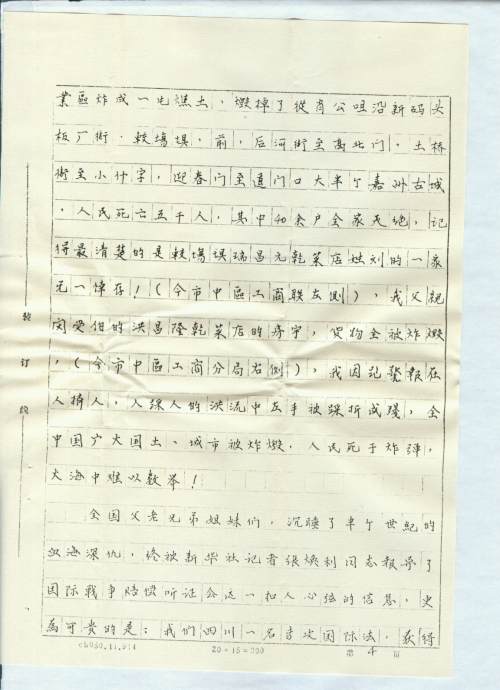 業區炸成一片焦土，燬掉了從肖公咀沿新码头
板厂街．較塲垻．前，后河街至嵩北门．土桥
街至小什字，迎春门至道门口大半个嘉州古城
．人民死亡五千人，其中40余户全家灭绝，记
得最清楚的是較塲垻瑞昌元乾菜店姓刘的一家
无一倖存！(今市中區工商联左側)，我父親
闵受伯的洪昌隆乾菜店的房宇，货物全被炸燬
，(今市中區工商分局右側)，我因跑警報在
人擠人，人踩人的洪流中左手被踩折成殘，全
中国广大国土、城市被炸燬．人民死于炸弹，
火海中难以数举！
全国父老兄弟姐妹们，沉睡了半个世紀的
血海深仇，终被新华社记者張焕利同志報导了
国际戰争賠償听证会这一扣人心弦的信息，更
為可貴的是：我们四川一名专攻国际法，获得
20×15=300
第 4 页
装
订
线